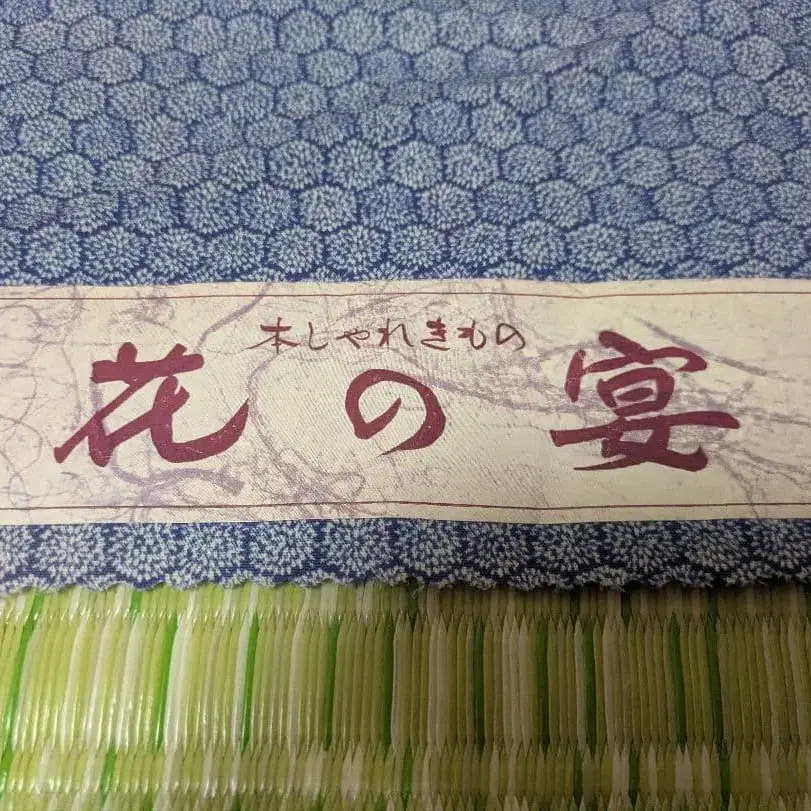 本しゃれきもの
花の宴